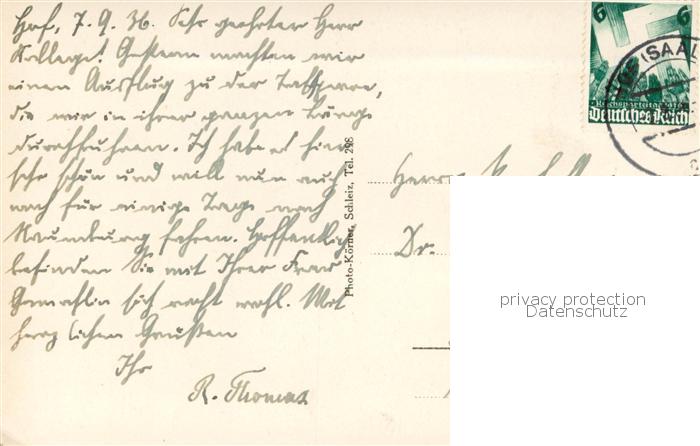 Hof, 7. 9. 36. Sehr geehrter Herr
Kollege! Gestern machten wir
einen Ausflug zu der Talsperre,
die wir in ihrer ganzen Länge
durchfuhren. Ich habe es hier
sehr schön und will nun auch
noch für einige Tage nach
Naumburg fahren. Hoffentlich
befinden Sie mit Ihrer Frau
Gemahlin sich recht wohl. Mit
herzlichen Grüßen
Ihr
R. Thomas
Photo-Körner, Schleiz, Tel. 298
6 6
Reichsparteitag 1936
Deutsches Reich
(SAAL
Herrn
Dr.
privacy protection
Datenschutz